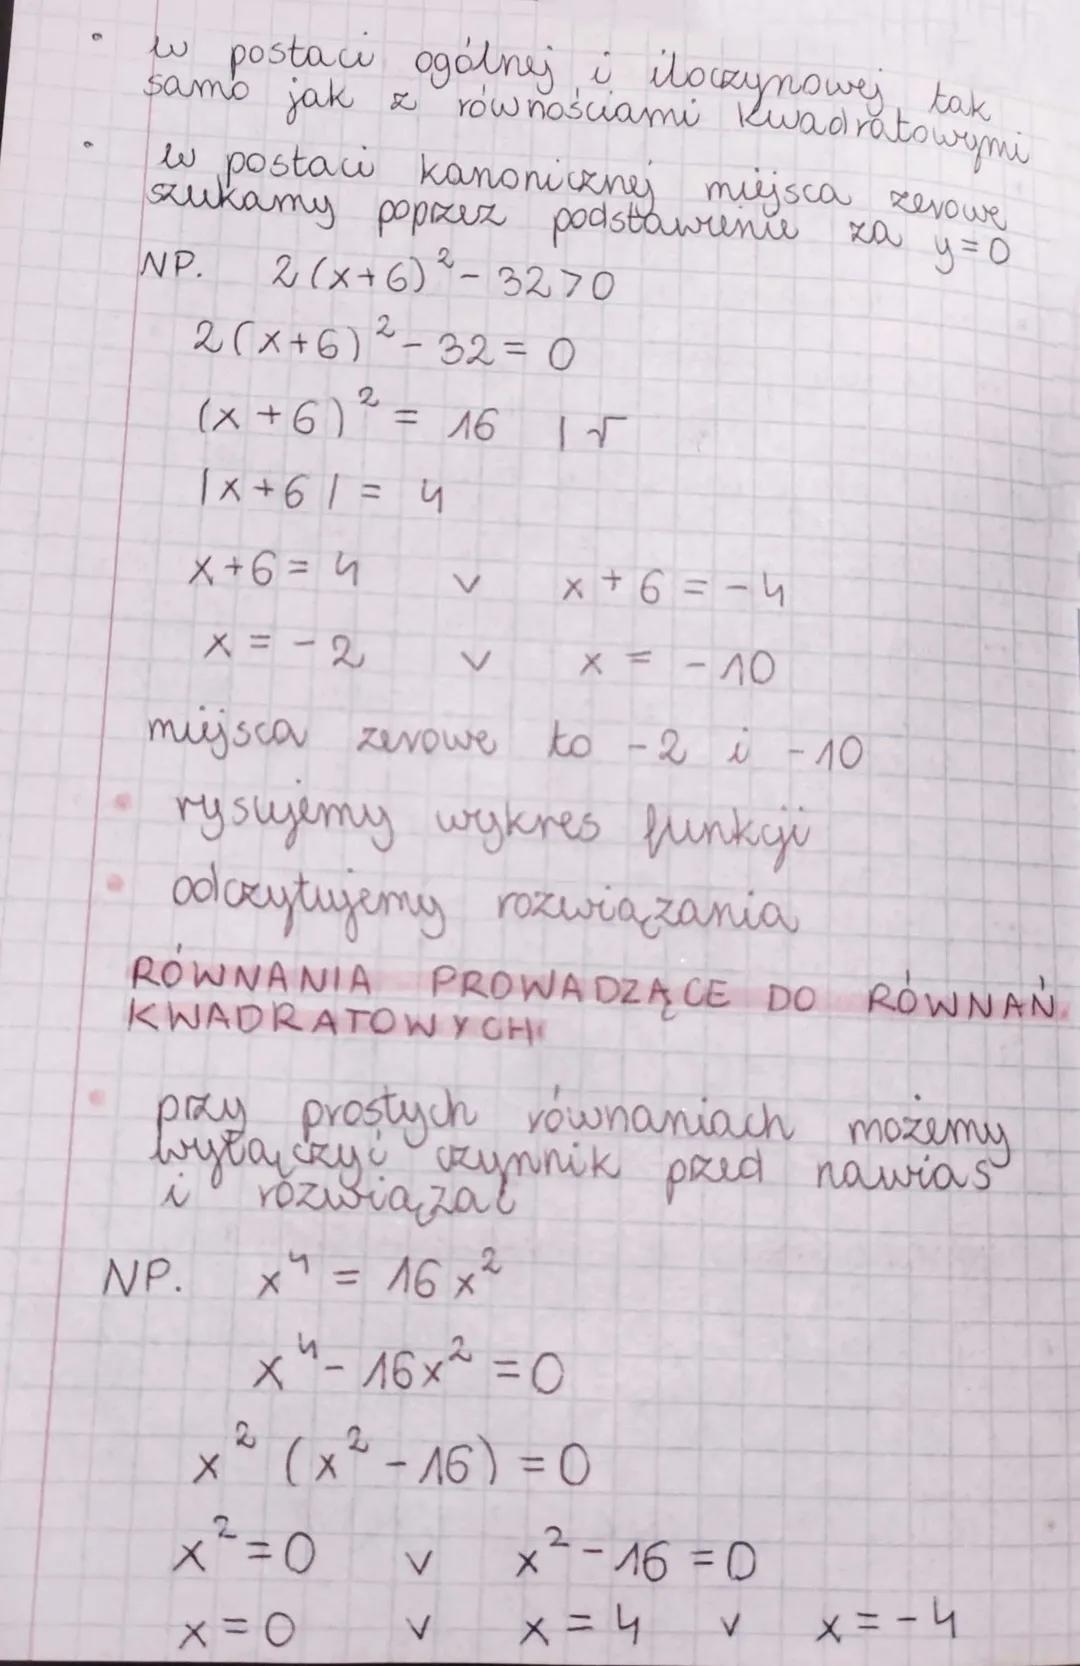 • w postaci ogólnej i iloczynowej tak
samo jak z równościami kwadratowymi
• w postaci kanonicznej miejsca zerowe
szukamy poprzez podstawienie za y=0
NP. 2(x+6)²-32>0
2(x+6)²-32=0
(x+6)² = 16 |√
|x+6| = 4
x+6=4 v x+6=-4
x=-2 v x=-10
miejsca zerowe to -2 i -10
• rysujemy wykres funkcji
• odczytujemy rozwiązania
RÓWNANIA PROWADZĄCE DO RÓWNAŃ
KWADRATOWYCH
• przy prostych równaniach możemy
wyłączyć czynnik przed nawias
i rozwiązać
NP. x⁴ = 16x²
x⁴-16x²=0
x²(x²-16)=0
x²=0 v x²-16=0
x=0 v x=4 v x=-4